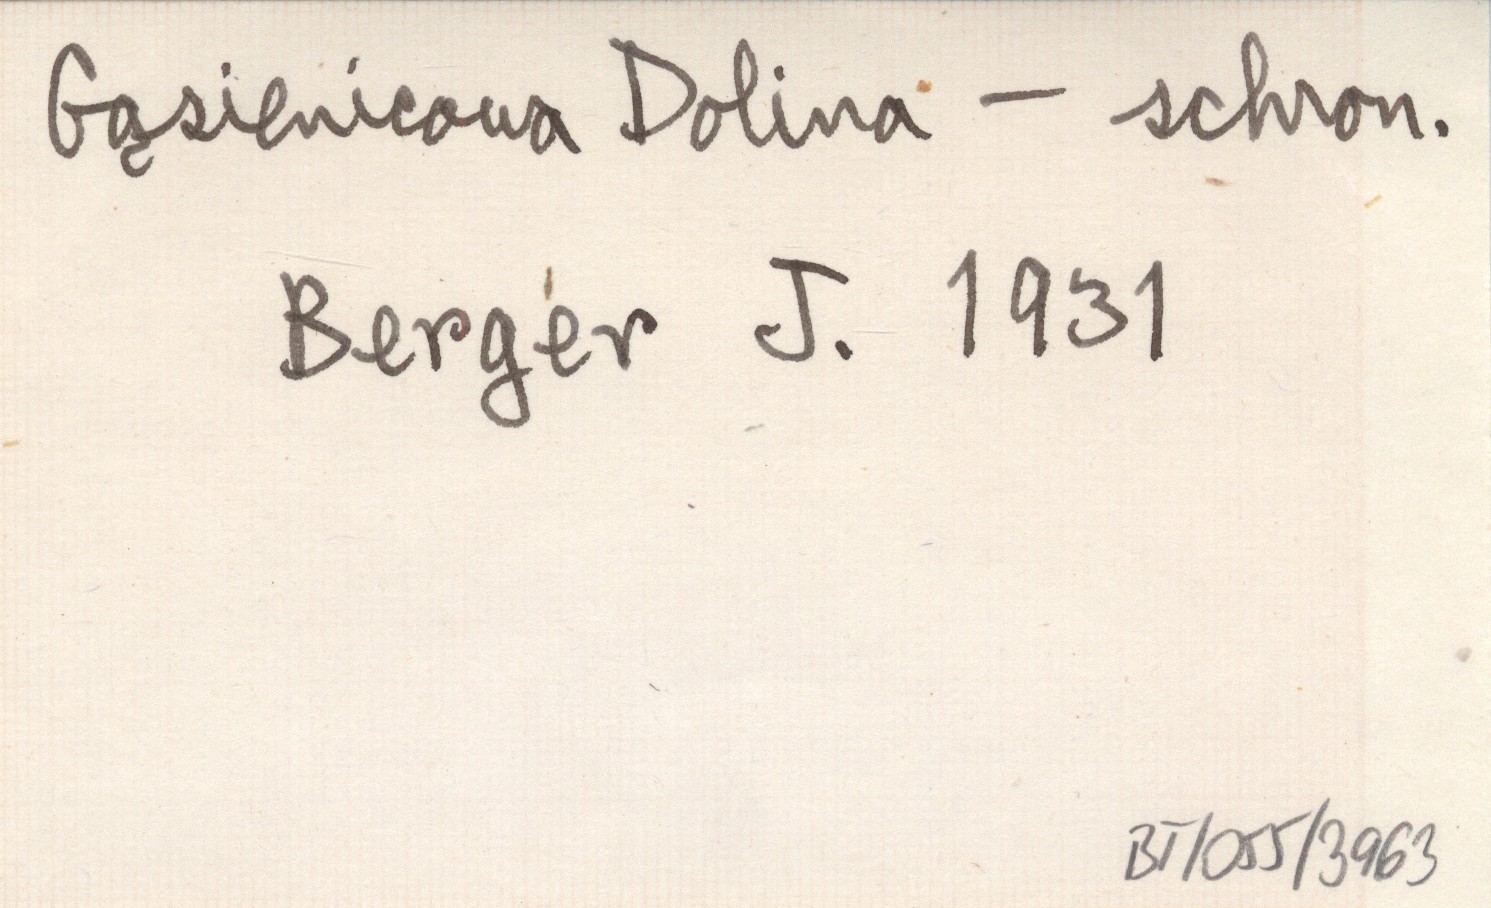 Gąsienicowa Dolina – schron.
Berger J. 1931
BT/055/3963